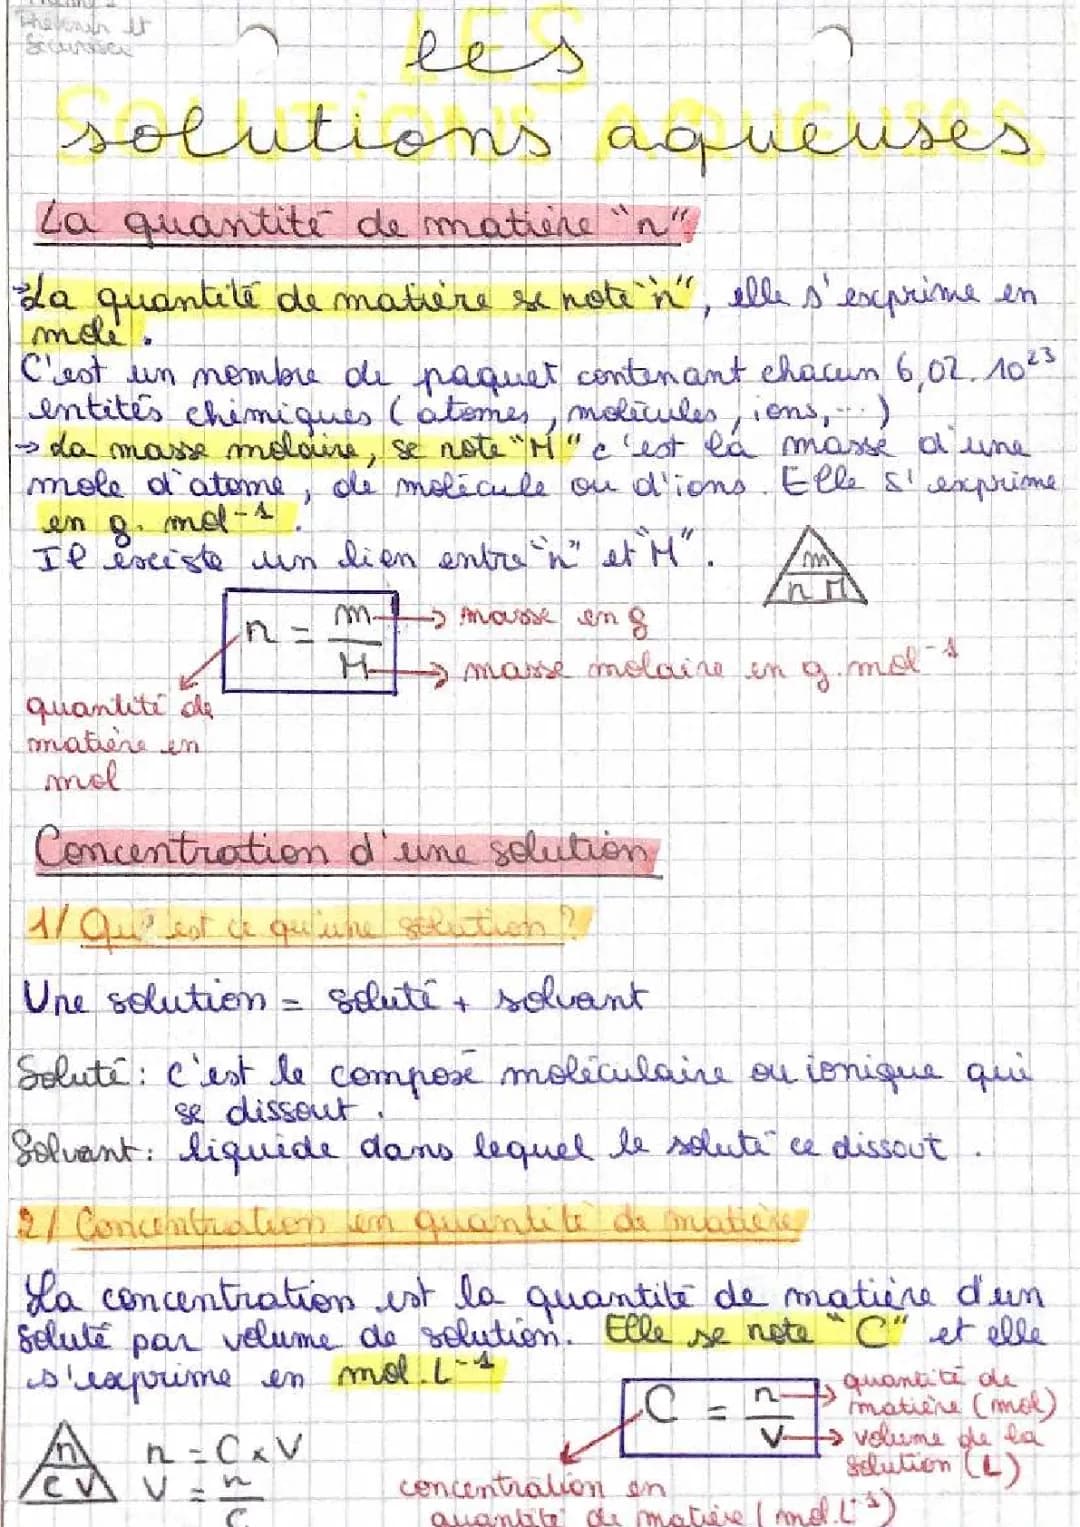 les
solutions aqueuses
LES
SOLUTIONS AQUEUSES
La quantité de matière "n"
→La quantité de matière se note "n", elle s'exprime en
mole.
C'est un nombre de paquet contenant chacun 6,02. 10²³
entités chimiques (atomes, molécules, ions,...)
→ La masse molaire, se note "M" c'est la masse d'une
mole d'atome, de molécule ou d'ions. Elle s'exprime
en g. mol⁻¹.
Il existe un lien entre "n" et "M".
m
n M
n = m/M
→ masse en g
→ masse molaire en g.mol⁻¹
quantité de
matière en
mol
Concentration d'une solution
1/ Qu'est ce qu'une solution ?
Une solution = soluté + solvant
Soluté : c'est le composé moléculaire ou ionique qui
se dissout.
Solvant : liquide dans lequel le soluté ce dissout.
2/ Concentration en quantité de matière
La concentration est la quantité de matière d'un
soluté par volume de solution. Elle se note "C" et elle
s'exprime en mol.L⁻¹
C = n/V
→ quantité de
matière (mol)
→ volume de la
solution (L)
n
C V
n = C x V
V = n/C
concentration en
quantité de matière (mol.L⁻¹)